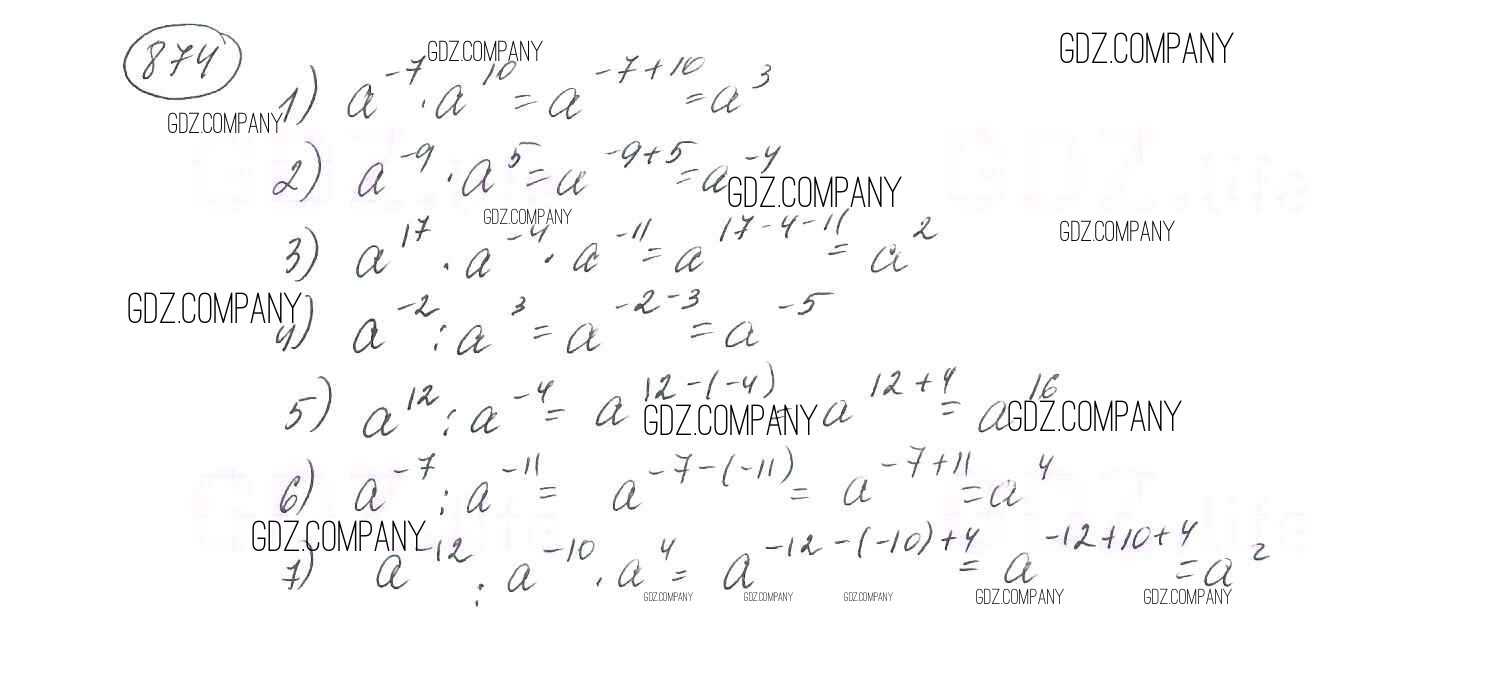 874
GDZ.COMPANY
GDZ.COMPANY
1) a⁻⁷ · a¹⁰ = a⁻⁷⁺¹⁰ = a³
GDZ.COMPANY
2) a⁻⁹ · a⁵ = a⁻⁹⁺⁵ = a⁻⁴
GDZ.COMPANY
GDZ.COMPANY
GDZ.COMPANY
3) a¹⁷ · a⁻⁴ · a⁻¹¹ = a¹⁷⁻⁴⁻¹¹ = a²
GDZ.COMPANY
4) a⁻² : a³ = a⁻²⁻³ = a⁻⁵
5) a¹² : a⁻⁴ = a¹²⁻⁽⁻⁴⁾ = a¹²⁺⁴ = a¹⁶
GDZ.COMPANY
GDZ.COMPANY
6) a⁻⁷ : a⁻¹¹ = a⁻⁷⁻⁽⁻¹¹⁾ = a⁻⁷⁺¹¹ = a⁴
GDZ.COMPANY
7) a⁻¹² : a⁻¹⁰ · a⁴ = a⁻¹²⁻⁽⁻¹⁰⁾⁺⁴ = a⁻¹²⁺¹⁰⁺⁴ = a²
GDZ.COMPANY GDZ.COMPANY GDZ.COMPANY GDZ.COMPANY GDZ.COMPANY